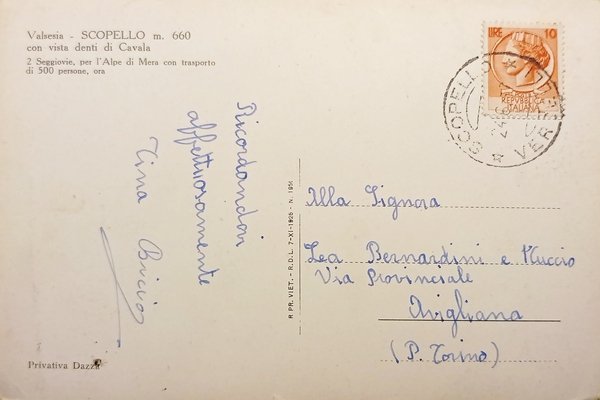 Valsesia - SCOPELLO m. 660
con vista denti di Cavala
2 Seggiovie, per l'Alpe di Mera con trasporto
di 500 persone, ora
Ricordandovi
affettuosamente
Tina Bicio
Privativa Dazza
R. PR. VIET. - R.D.L. 7-XI-1926 - N. 1951
LIRE 10
REPUBBLICA
ITALIANA
SCOPELLO
Alla Signora
Lea Bernardini e Nuccio
Via Provinciale
Avigliana
(P. Torino)